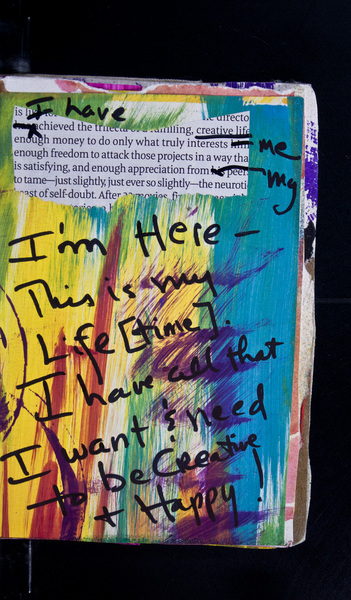 I have
is
the directo
achieved the trifecta of a fulfilling, creative life
enough money to do only what truly interests him me
enough freedom to attack those projects in a way tha
is satisfying, and enough appreciation from his peer my
to tame—just slightly, just ever so slightly—the neuroti
east of self-doubt. After
I'm Here –
This is my
Life [time].
I have all that
I want & need
to be Creative
+ Happy!